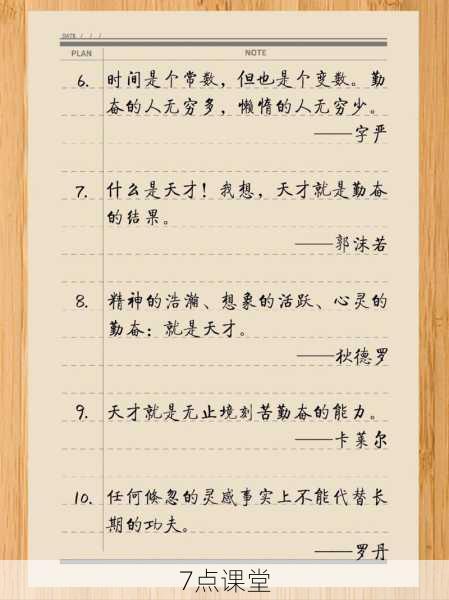 DATE / / /
PLAN NOTE
6. 时间是个常数，但也是个变数。勤
奋的人无穷多，懒惰的人无穷少。
——字严
7. 什么是天才！我想，天才就是勤奋
的结果。
——郭沫若
8. 精神的浩瀚、想象的活跃、心灵的
勤奋：就是天才。
——狄德罗
9. 天才就是无止境刻苦勤奋的能力。
——卡莱尔
10. 任何倏忽的灵感事实上不能代替长
期的功夫。
——罗丹
7点课堂